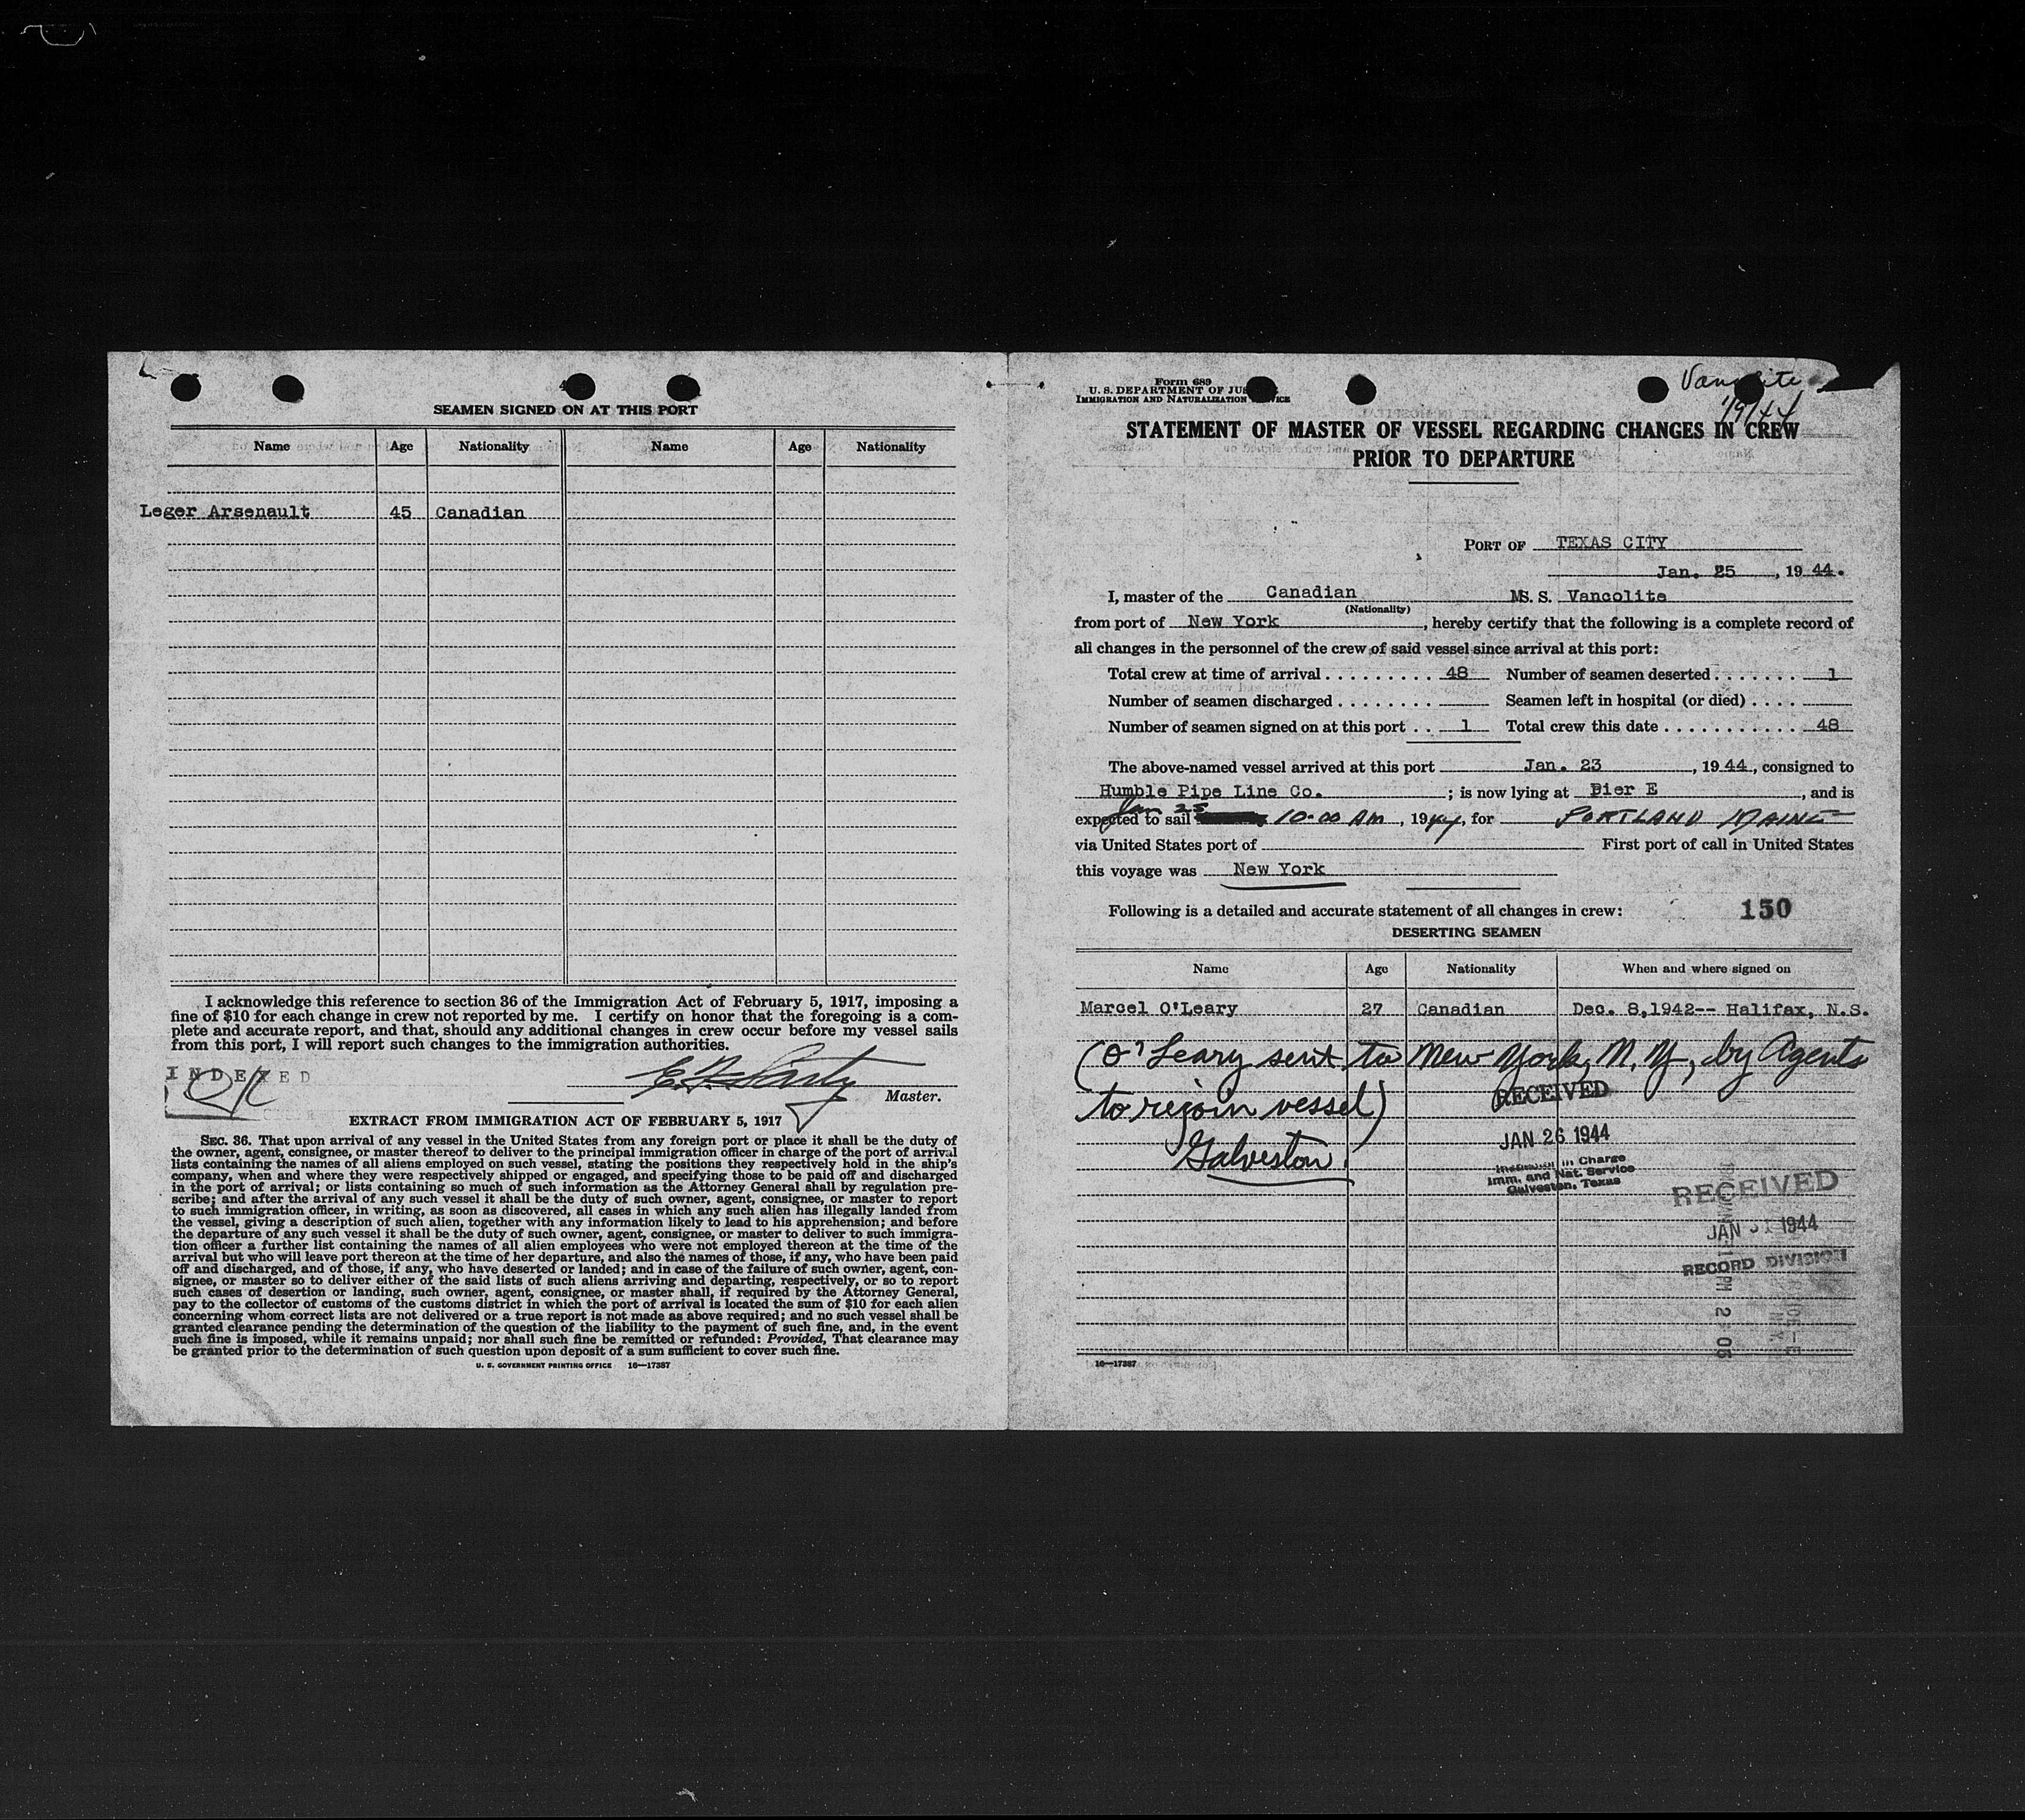 SEAMEN SIGNED ON AT THIS PORT
Name Age Nationality Name Age Nationality
Leger Arsenault 45 Canadian
I acknowledge this reference to section 36 of the Immigration Act of February 5, 1917, imposing a
fine of $10 for each change in crew not reported by me. I certify on honor that the foregoing is a com-
plete and accurate report, and that, should any additional changes in crew occur before my vessel sails
from this port, I will report such changes to the immigration authorities.
INDEXED
Master.
EXTRACT FROM IMMIGRATION ACT OF FEBRUARY 5, 1917
SEC. 36. That upon arrival of any vessel in the United States from any foreign port or place it shall be the duty of
the owner, agent, consignee, or master thereof to deliver to the principal immigration officer in charge of the port of arrival
lists containing the names of all aliens employed on such vessel, stating the positions they respectively hold in the ship's
company, when and where they were respectively shipped or engaged, and specifying those to be paid off and discharged
in the port of arrival; or lists containing so much of such information as the Attorney General shall by regulation pre-
scribe; and after the arrival of any such vessel it shall be the duty of such owner, agent, consignee, or master to report
to such immigration officer, in writing, as soon as discovered, all cases in which any such alien has illegally landed from
the vessel, giving a description of such alien, together with any information likely to lead to his apprehension; and before
the departure of any such vessel it shall be the duty of such owner, agent, consignee, or master to deliver to such immigra-
tion officer a further list containing the names of all alien employees who were not employed thereon at the time of the
arrival but who will leave port thereon at the time of her departure, and also the names of those, if any, who have been paid
off and discharged, and of those, if any, who have deserted or landed; and in case of the failure of such owner, agent, con-
signee, or master so to deliver either of the said lists of such aliens arriving and departing, respectively, or so to report
such cases of desertion or landing, such owner, agent, consignee, or master shall, if required by the Attorney General,
pay to the collector of customs of the customs district in which the port of arrival is located the sum of $10 for each alien
concerning whom correct lists are not delivered or a true report is not made as above required; and no such vessel shall be
granted clearance pending the determination of the question of the liability to the payment of such fine, and, in the event
such fine is imposed, while it remains unpaid; nor shall such fine be remitted or refunded: Provided, That clearance may
be granted prior to the determination of such question upon deposit of a sum sufficient to cover such fine.
U. S. GOVERNMENT PRINTING OFFICE 16—17387
Vancolite
1/9/44
Form 689
U. S. DEPARTMENT OF JUSTICE
IMMIGRATION AND NATURALIZATION SERVICE
STATEMENT OF MASTER OF VESSEL REGARDING CHANGES IN CREW
PRIOR TO DEPARTURE
PORT OF TEXAS CITY
Jan. 25, 1944.
I, master of the Canadian MS. S. Vancolite
(Nationality)
from port of New York, hereby certify that the following is a complete record of
all changes in the personnel of the crew of said vessel since arrival at this port:
Total crew at time of arrival . . . . . . . . . 48 Number of seamen deserted . . . . . . . 1
Number of seamen discharged . . . . . . . . Seamen left in hospital (or died) . . . .
Number of seamen signed on at this port . . 1 Total crew this date . . . . . . . . . . . 48
The above-named vessel arrived at this port Jan. 23, 1944, consigned to
Humble Pipe Line Co. ; is now lying at Pier E, and is
Jan 25
expected to sail 10-00 AM, 1944, for PORTLAND MAINE
via United States port of First port of call in United States
this voyage was New York
Following is a detailed and accurate statement of all changes in crew: 150
DESERTING SEAMEN
Name Age Nationality When and where signed on
Marcel O'Leary 27 Canadian Dec. 8,1942-- Halifax, N.S.
(O'Leary sent to New York, N.Y, by Agents
to rejoin vessel)
Galveston.
RECEIVED
JAN 26 1944
in Charge
Imm. and Nat. Service
Galveston, Texas
RECEIVED
JAN 31 1944
RECORD DIVISION
PM 2 05
16—17387